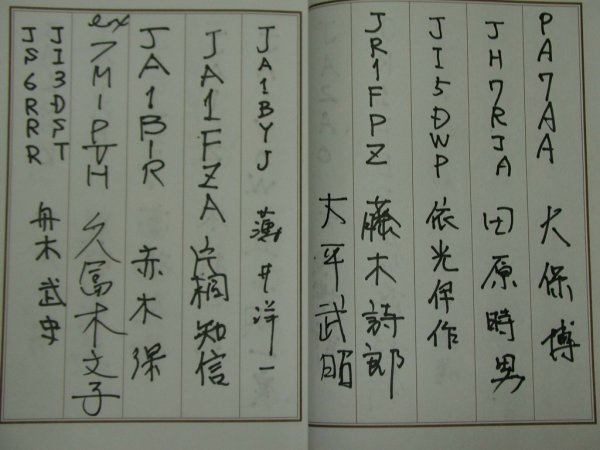 PA7AA 大保博
JH7RJA 田原時男
JI5DWP 依光伊作
JR1FPZ 藤木詩郎
大平武昭
JA1BYJ 薄井洋一
JA1FZA 片桐知信
JA1BIR 赤木保
ex 7M1PVH 久富木文子
JI3DST
JS6RRR 舟木武史